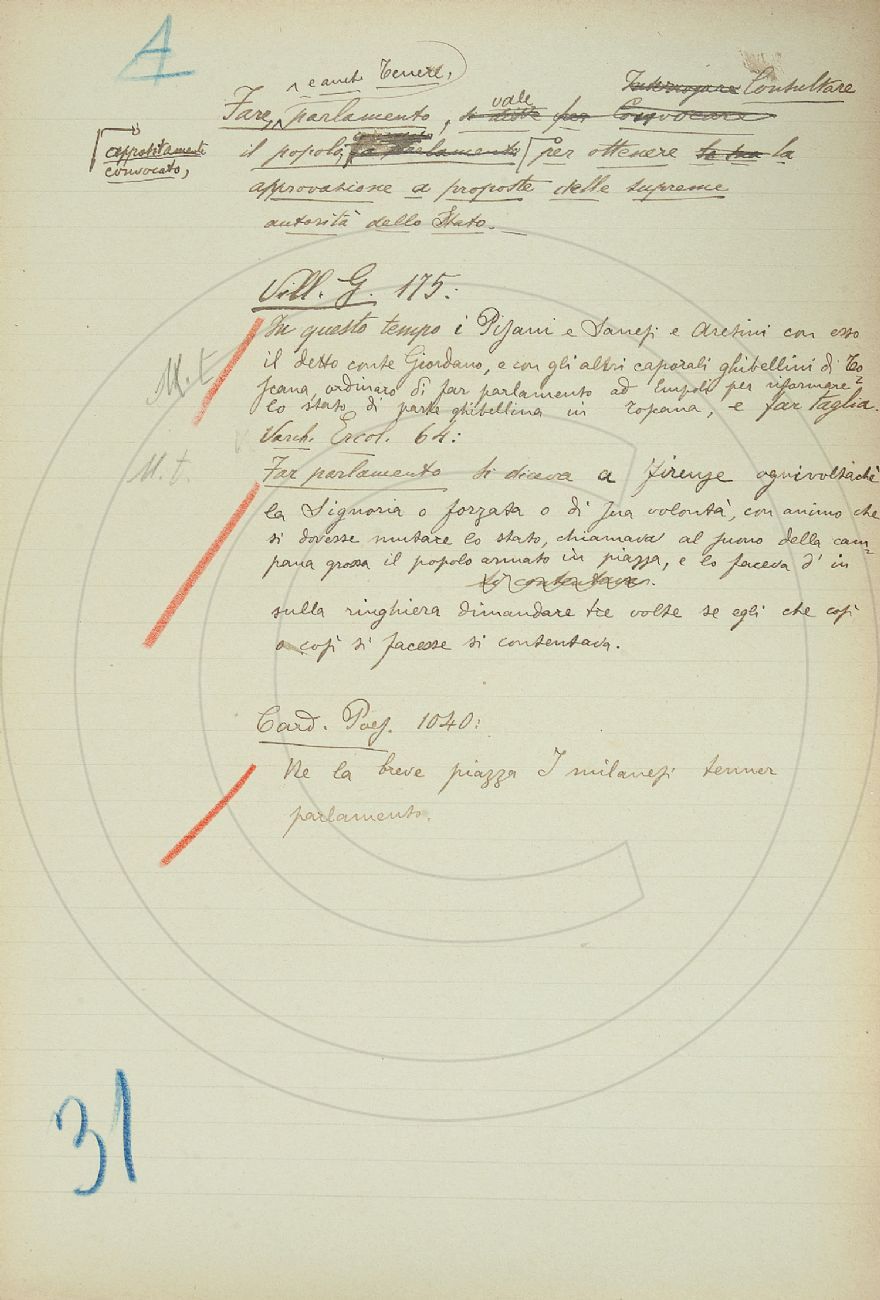 A
e anche Tenere,
Fare, parlamento, si dice per vale Convocare Interrogare Consultare
appositamente
convocato,
il popolo, fa parlamento per ottenere la sua la
approvazione a proposte delle supreme
autorità dello Stato.
Vill. G. 175:
In questo tempo i Pisani e Sanesi e Aretini con esso
il detto conte Giordano, e con gli altri caporali ghibellini di To-
scana, ordinaro di far parlamento ad Empoli per riformare
lo stato di parte ghibellina in Toscana, e far taglia.
M. t.
Varch. Ercol. 64:
M. t.
Far parlamento si diceva a Firenze ognivoltachè
la Signoria o forzata o di sua volontà, con animo che
si dovesse mutare lo stato, chiamava al suono della cam-
pana grossa il popolo armato in piazza, e lo faceva d' in
si contentava.
sulla ringhiera dimandare tre volte se egli che così
o così si facesse si contentava.
Card. Poes. 1040:
Ne la breve piazza I milanesi tenner
parlamento.
31